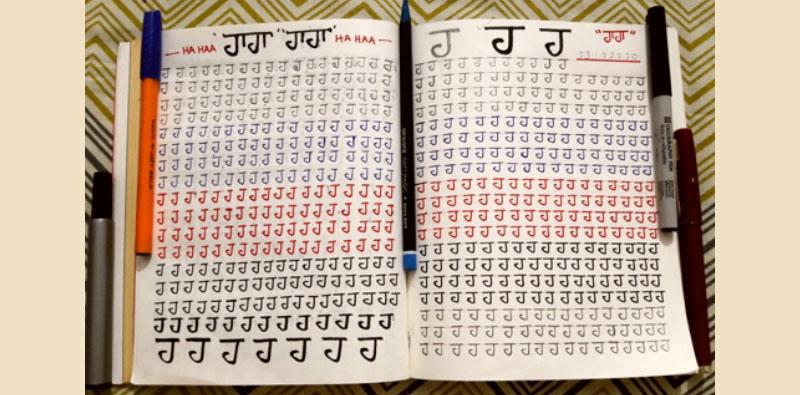 — HA HAA 'ਹਾਹਾ' "ਹਾਹਾ" HA HAA —
ਹ ਹ ਹ ਹ ਹ ਹ ਹ ਹ ਹ ਹ ਹ ਹ ਹ ਹ ਹ ਹ ਹ
ਹ ਹ ਹ ਹ ਹ ਹ ਹ ਹ ਹ ਹ ਹ ਹ ਹ ਹ ਹ ਹ ਹ
ਹ ਹ ਹ ਹ ਹ ਹ ਹ ਹ ਹ ਹ ਹ ਹ ਹ ਹ ਹ ਹ ਹ
ਹ ਹ ਹ ਹ ਹ ਹ ਹ ਹ ਹ ਹ ਹ ਹ ਹ ਹ ਹ ਹ ਹ
ਹ ਹ ਹ ਹ ਹ ਹ ਹ ਹ ਹ ਹ ਹ ਹ ਹ ਹ ਹ ਹ ਹ
ਹ ਹ ਹ ਹ ਹ ਹ ਹ ਹ ਹ ਹ ਹ ਹ ਹ ਹ ਹ ਹ ਹ
ਹ ਹ ਹ ਹ ਹ ਹ ਹ ਹ ਹ ਹ ਹ ਹ ਹ ਹ ਹ ਹ ਹ
ਹ ਹ ਹ ਹ ਹ ਹ ਹ ਹ ਹ ਹ ਹ ਹ ਹ ਹ ਹ ਹ ਹ
ਹ ਹ ਹ ਹ ਹ ਹ ਹ ਹ ਹ ਹ ਹ ਹ ਹ ਹ ਹ ਹ
ਹ ਹ ਹ ਹ ਹ ਹ ਹ ਹ ਹ ਹ ਹ ਹ ਹ ਹ ਹ ਹ
ਹ ਹ ਹ ਹ ਹ ਹ ਹ ਹ ਹ ਹ ਹ ਹ ਹ ਹ ਹ ਹ
ਹ ਹ ਹ ਹ ਹ ਹ ਹ ਹ ਹ ਹ ਹ ਹ ਹ ਹ ਹ ਹ
ਹ ਹ ਹ ਹ ਹ ਹ ਹ ਹ ਹ ਹ ਹ ਹ ਹ ਹ ਹ ਹ ਹ ਹ
ਹ ਹ ਹ ਹ ਹ ਹ ਹ ਹ ਹ ਹ ਹ ਹ ਹ ਹ ਹ ਹ ਹ
ਹ ਹ ਹ ਹ ਹ ਹ ਹ ਹ ਹ ਹ ਹ ਹ ਹ ਹ ਹ ਹ ਹ
ਹ ਹ ਹ ਹ ਹ ਹ ਹ ਹ ਹ ਹ ਹ ਹ ਹ ਹ
ਹ ਹ ਹ ਹ ਹ ਹ ਹ
ਹ ਹ ਹ "ਹਾਹਾ"
ਹ ਹ ਹ ਹ ਹ ਹ ਹ ਹ ਹ ਹ
ਹ ਹ ਹ ਹ ਹ ਹ ਹ ਹ ਹ ਹ ਹ ਹ ਹ ਹ ਹ ਹ
ਹ ਹ ਹ ਹ ਹ ਹ ਹ ਹ ਹ ਹ ਹ ਹ ਹ ਹ ਹ ਹ
ਹ ਹ ਹ ਹ ਹ ਹ ਹ ਹ ਹ ਹ ਹ ਹ ਹ ਹ ਹ ਹ
ਹ ਹ ਹ ਹ ਹ ਹ ਹ ਹ ਹ ਹ ਹ ਹ ਹ ਹ
ਹ ਹ ਹ ਹ ਹ ਹ ਹ ਹ ਹ ਹ ਹ ਹ ਹ ਹ
ਹ ਹ ਹ ਹ ਹ ਹ ਹ ਹ ਹ ਹ ਹ ਹ ਹ ਹ
ਹ ਹ ਹ ਹ ਹ ਹ ਹ ਹ ਹ ਹ ਹ ਹ ਹ ਹ
ਹ ਹ ਹ ਹ ਹ ਹ ਹ ਹ ਹ ਹ ਹ ਹ ਹ ਹ ਹ ਹ
ਹ ਹ ਹ ਹ ਹ ਹ ਹ ਹ ਹ ਹ ਹ ਹ ਹ ਹ ਹ ਹ
ਹ ਹ ਹ ਹ ਹ ਹ ਹ ਹ ਹ ਹ ਹ ਹ ਹ ਹ ਹ ਹ
ਹ ਹ ਹ ਹ ਹ ਹ ਹ ਹ ਹ ਹ ਹ ਹ ਹ ਹ ਹ ਹ
ਹ ਹ ਹ ਹ ਹ ਹ ਹ ਹ ਹ ਹ ਹ ਹ ਹ ਹ ਹ ਹ ਹ
ਹ ਹ ਹ ਹ ਹ ਹ ਹ ਹ ਹ ਹ ਹ ਹ ਹ ਹ ਹ ਹ ਹ
ਹ ਹ ਹ ਹ ਹ ਹ ਹ ਹ ਹ ਹ ਹ ਹ ਹ ਹ ਹ ਹ ਹ
ਹ ਹ ਹ ਹ ਹ ਹ ਹ ਹ ਹ ਹ ਹ ਹ ਹ ਹ ਹ ਹ ਹ
ਹ ਹ ਹ ਹ ਹ ਹ ਹ ਹ ਹ ਹ ਹ ਹ ਹ ਹ ਹ ਹ ਹ
ਹ ਹ ਹ ਹ ਹ ਹ ਹ ਹ ਹ ਹ ਹ ਹ ਹ ਹ ਹ ਹ ਹ
ਹ ਹ ਹ ਹ ਹ ਹ ਹ ਹ ਹ ਹ ਹ ਹ ਹ ਹ ਹ ਹ ਹ